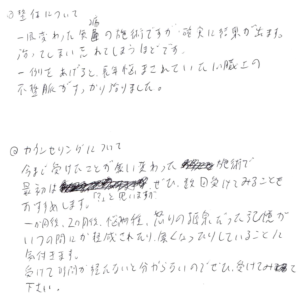 ③整体について
一風変わった施術ですが確実に結果が出ます。
治ってしまい忘れてしまうほどです。
一例をあげると、長年悩まされていた心臓の
不整脈がすっかりなりました。
④カウンセリングについて
今まで受けたことが無い変わった施術で
最初は と思いますが
ぜひ、数回受けてみることを
おすすめします。
一か月後、2か月後、怒りの 気だった記憶が
いつの間にか 成されたり、無くなったりしていることに
気付きます。
受けて 間が経たないと分からないのでぜひ、受けてみて
下さい。